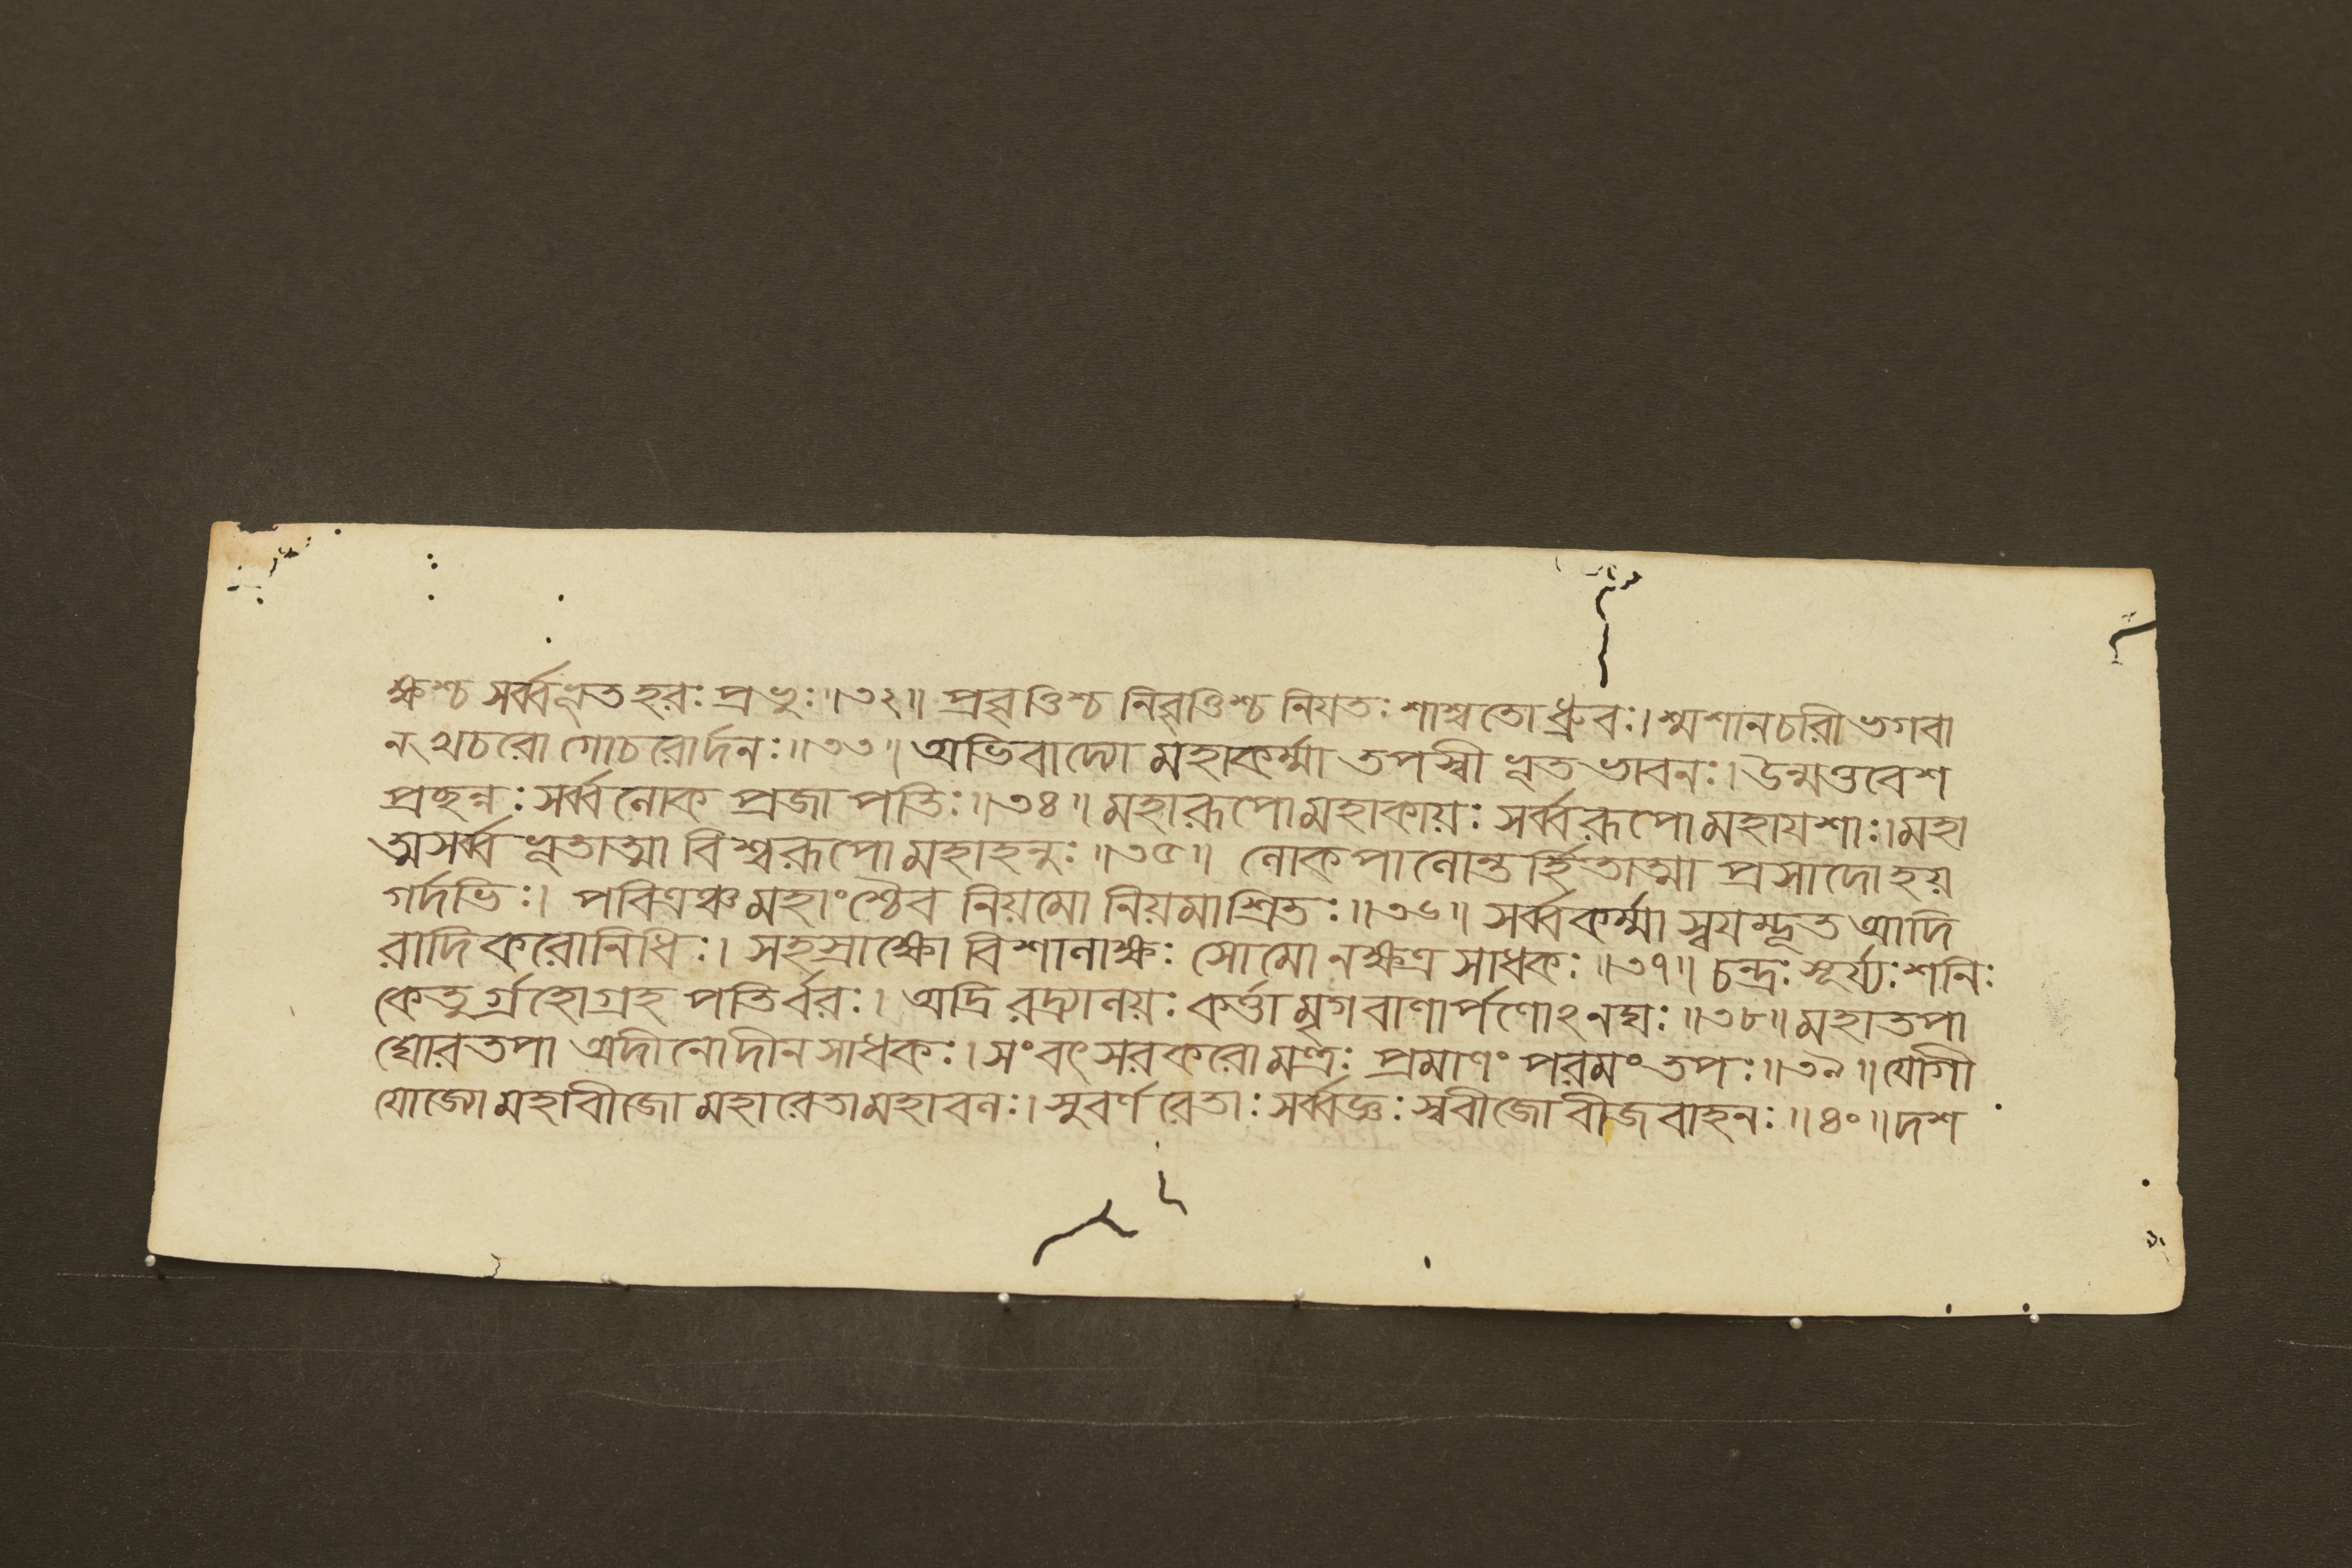 ক্ষশ্চ সর্ব্বভূতহরঃ প্রভুঃ॥৩২॥ প্রবৃত্তিশ্চ নিবৃত্তিশ্চ নিয়তঃ শাশ্বতো ধ্রুবঃ। শ্মশানচরী ভগবা
ন্ খচরো গোচরোর্দনঃ॥৩৩॥ অভিবাদ্যো মহাকর্ম্মা তপস্বী ভূতভাবনঃ। উন্মত্তবেশ
প্রছন্নঃ সর্ব্বলোক প্রজাপতিঃ॥৩৪॥ মহারূপো মহাকায়ঃ সর্ব্বরূপো মহাযশাঃ। মহা
ত্মা সর্ব্বভূতাত্মা বিশ্বরূপো মহাহনুঃ॥৩৫॥ লোকপালোন্তর্হিতাত্মা প্রসাদো হয়
গর্দভিঃ। পবিত্রঞ্চ মহাংশ্চৈব নিয়মো নিয়মাশ্রিতঃ॥৩৬॥ সর্ব্বকর্ম্মা স্বয়ম্ভূত আদি
রাদিকরো নিধিঃ। সহস্রাক্ষো বিশালাক্ষঃ সোমো নক্ষত্র সাধকঃ॥৩৭॥ চন্দ্রঃ সূর্য্যঃ শনিঃ
কেতুর্গ্রহো গ্রহপতির্বরঃ। অদ্রিরদ্র্যালয়ঃ কর্ত্তা মৃগবাণার্পণোঽনঘঃ॥৩৮॥ মহাতপা
ঘোরতপা অদীনো দীনসাধকঃ। সংবৎসরকরো মন্ত্রঃ প্রমাণং পরমং তপঃ॥৩৯॥ যোগী
যোজ্যো মহাবীজো মহারেতা মহাবলঃ। সুবর্ণরেতাঃ সর্ব্বজ্ঞঃ স্ববীজো বীজবাহনঃ॥৪০॥ দশ